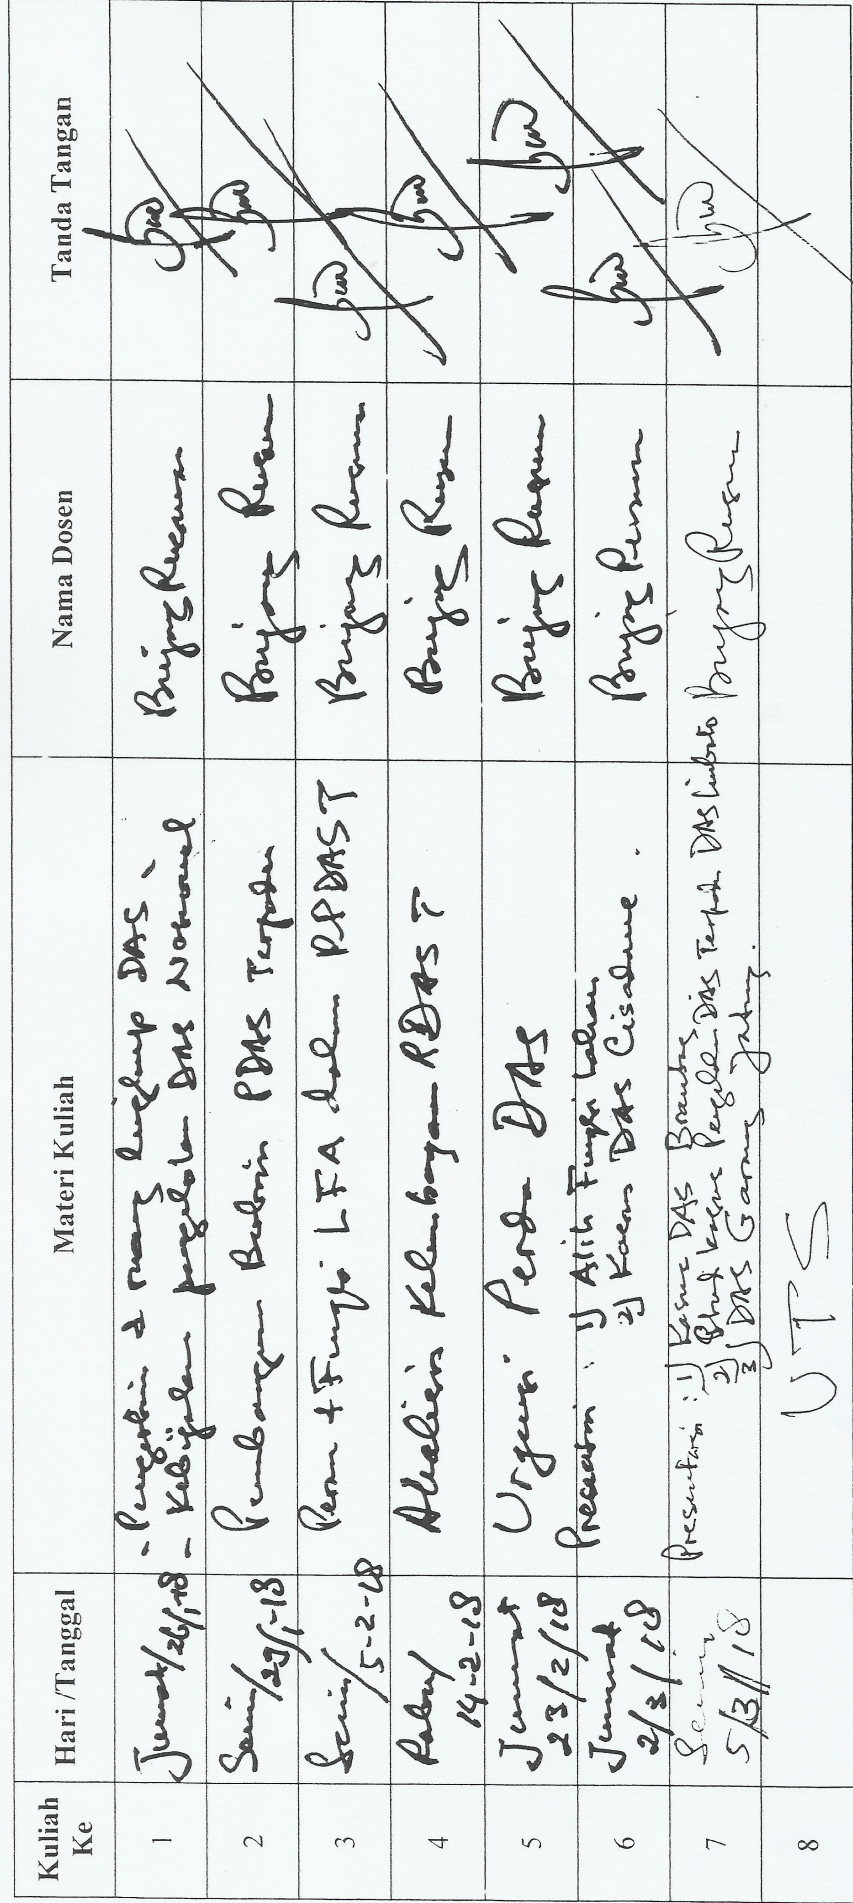 Kuliah Ke
Hari /Tanggal
Materi Kuliah
Nama Dosen
Tanda Tangan
1
Jumat/26/1-18
- Pengertian & ruang lingkup DAS
- Kebijakan pengelolaan DAS Nasional
Bujang Rusman
2
Senin/29/1-18
Pembangunan PDAS Terpadu
Bujang Rusman
3
Senin/5-2-18
Peran + Fungsi LFA dalam RPDAST
Bujang Rusman
4
Rabu/
14-2-18
Kelembagaan RPDAST
Bujang Rusman
5
Jumat
23/2/18
Urgensi Perda DAS
Bujang Rusman
6
Jumat
2/3/18
Presentasi : 1) Alih Fungsi Lahan
2) Kasus DAS Cisadane.
Bujang Rusman
7
Senin
5/3/18
Presentasi : 1) Kasus DAS Brantas
2) Studi kasus Pengelolaan DAS Terpadu DAS Limboto
3) DAS Garang Jateng.
Bujang Rusman
8
UTS